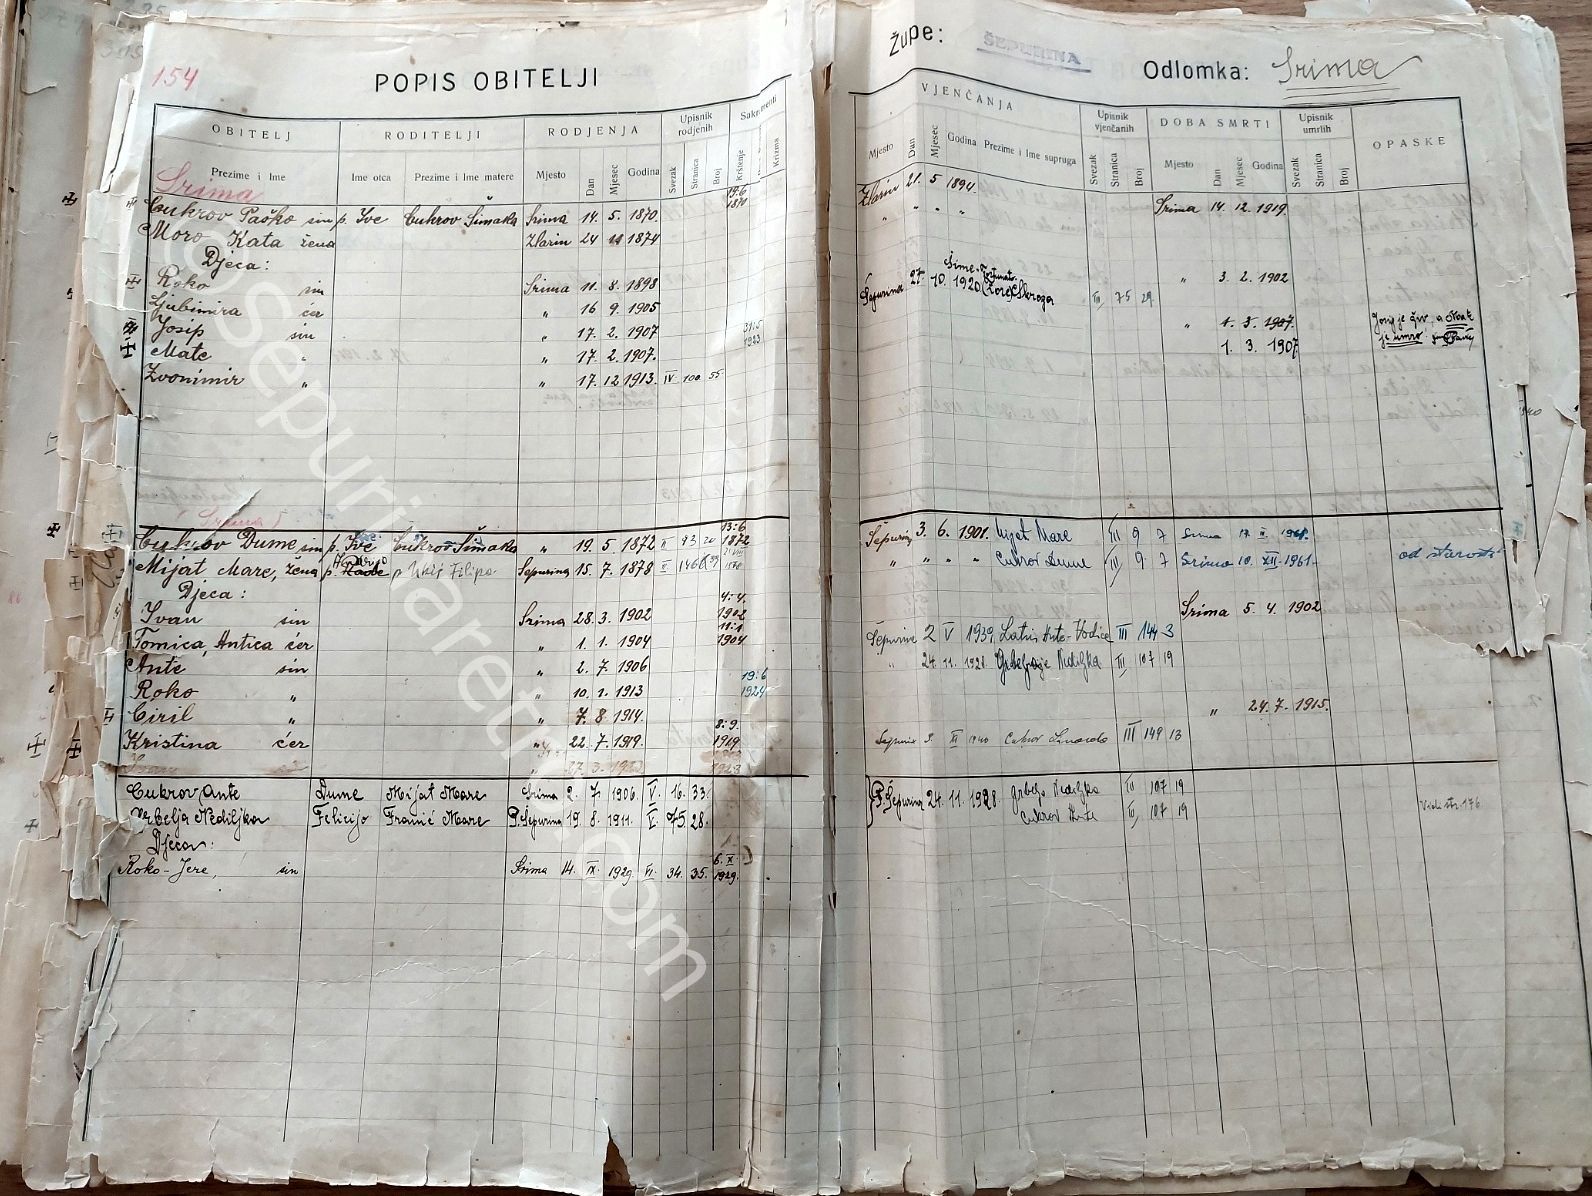 154
POPIS OBITELJI
Župe: ŠEPURINA
Odlomka: Srima
OBITELJ RODITELJI RODJENJA Upisnik rodjenih
Prezime i Ime Ime otca Prezime i Ime matere Mjesto Dan Mjesec Godina Svezak Stranica Broj Krštenje Krizma
VJENČANJA Upisnik vjenčanih DOBA SMRTI Upisnik umrlih OPASKE
Mjesto Dan Mjesec Godina Prezime i Ime supruga Svezak Stranica Broj Mjesto Dan Mjesec Godina Svezak Stranica Broj
Srima
Cukrov Paško sin p. Ive Cukrov Šimaka Srima 14. 5. 1870. 19:6 1870 Zlarin 21. 5 1894. Srima 14. 12. 1919.
Moro Kata žena Zlarin 24 11 1874 " " " "
Djeca:
Roko sin Srima 11. 8. 1898 " 3. 2. 1902
Ljubimira ćer " 16 9. 1905 Šepurina 27. 10. 1920 III 75 29.
Josip sin " 17. 2. 1907 31:5 1923 " 1. 3. 1907.
Mate " " 17 2. 1907. 1. 3. 1907
Zvonimir " " 17. 12 1913. IV 100. 55
(Srima)
Cukrov Dume sin p. Ive Cukrov Šimaka " 19. 5 1872 II 93 20 13:6 1872 Šepurina 3. 6. 1901. Mijat Mare III 9 7 Srima
Mijat Mare, žena p. Šepurina 15. 7. 1878 " " " " Cukrov Dume III 9 7 Srima 10. XII. 1961. od starosti
Djeca:
Ivan sin Srima 28. 3. 1902 4:4. 1902 Srima 5. 4. 1902
Tomica, Antica ćer " 1. 1. 1904 11:1 1904 Šepurine 2 V 1939. Ante Vodice III 144 3
Ante sin " 2. 7. 1906 " 24. 11. 1928. Nediljka III 107 19
Roko " " 10. 1. 1913 19:6 1924
Ciril " " 7. 8. 1914. " 24. 7. 1915.
Kristina ćer " 22. 7. 1919. 8:9. 1919 1940 Cukrov III 149 13
Cukrov Ante Dume Mijat Mare Srima 2. 7. 1906. V. 16. 33. P. Šepurina 24. 11. 1928 Grbelja Nediljka III 107 19
Grbelja Nediljka Felicijo Franić Mare P. Šepurina 19. 8. 1911. V. 75. 28. Cukrov Ante III, 107 19 Vidi str. 176
Djeca:
Roko-Jere, sin Srima 14. IX. 1929. VI. 34. 35. 6. X. 1929.
©sepurinaretro.com